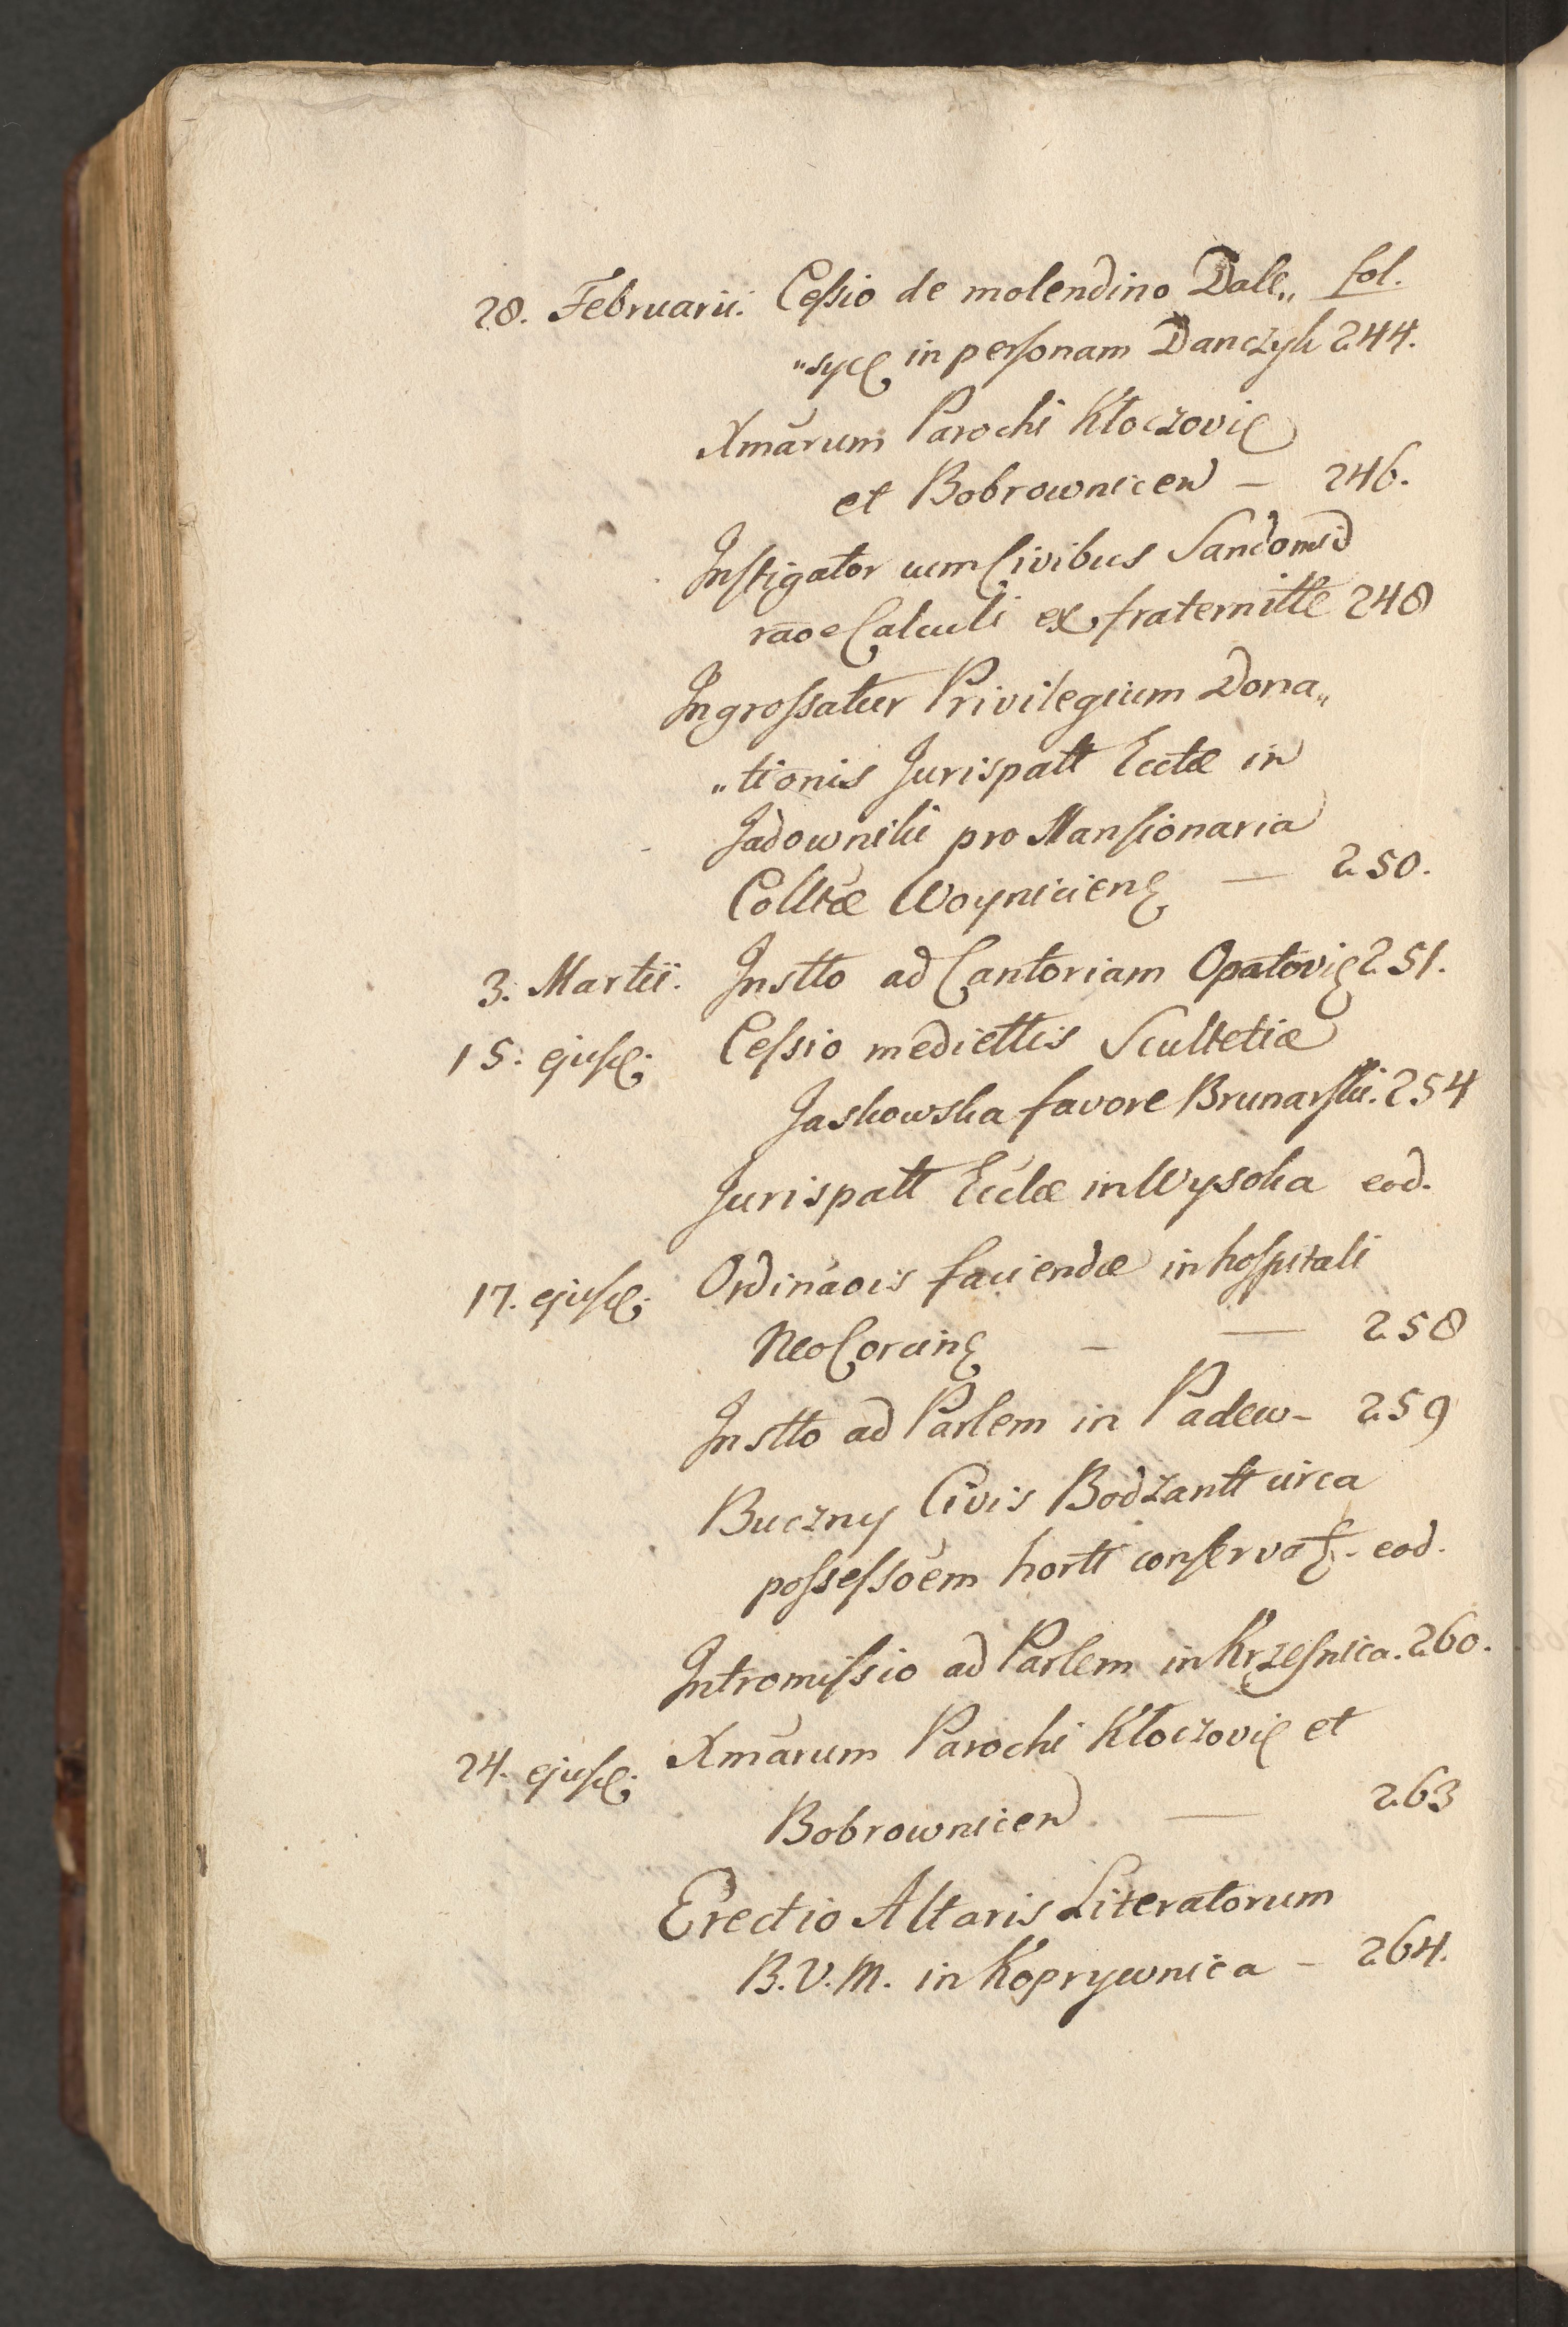 28. Februarii. Cessio de molendino Dale„ fol.
„syc in personam Danczyk 244.
Xmarum Parochi Kłoczovic
et Bobrownicen – 246.
Instigator cum Civibus Sandomir
raoe Calculi ex fraternitte 248
Ingrossatur Privilegium Dona„
„tionis Jurispatt Ecclae in
Jadowniki pro Mansionaria
Colltae Woyniciens — 250.
3. Martii. Instto ad Cantoriam Opatovic 251.
15. ejusd. Cessio mediettis Scultetiae
Jaskowska favore Brunarski. 254
Jurispatt Ecclae in Wysoka eod.
17. ejusd. Ordinaois faciendae in hospitali
NeoCorcins – — 258
Instto ad Parlem in Padew – 259
Buczny Civis Bodzantt circa
possessoem hortt conservat. eod.
Intromissio ad Parlem in Krzesnica. 260.
24. ejusd. Xmarum Parochi Kłoczovic et
Bobrownicen — 263
Erectio Altaris Literatorum
B.V.M. in Koprywnica – 264.